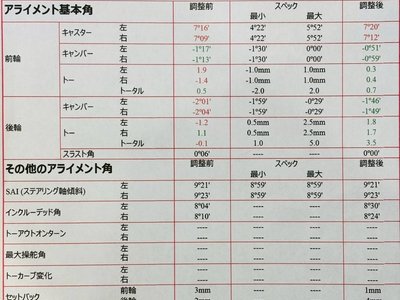 アライメント基本角 調整前 スペック 調整後
最小 最大
前輪 キャスター 左 7°16' 4°22' 5°52' 7°20'
右 7°09' 4°22' 5°52' 7°12'
キャンバー 左 -1°17' -1°30' 0°00' -0°51'
右 -1°13' -1°30' 0°00' -0°59'
トー 左 1.9 -1.0mm 1.0mm 0.3
右 -1.4 -1.0mm 1.0mm 0.4
トータル 0.5 -2.0 2.0 0.7
後輪 キャンバー 左 -2°01' -1°59' -0°29' -1°46'
右 -2°04' -1°59' -0°29' -1°49'
トー 左 -1.2 0.5mm 2.5mm 1.8
右 1.1 0.5mm 2.5mm 1.7
トータル -0.1 1.0 5.0 3.5
スラスト角 0°06' ---- ---- 0°00'
その他のアライメント角 調整前 スペック 調整後
最小 最大
SAI (ステアリング軸傾斜) 左 9°21' 8°59' 8°59' 9°21'
右 9°23' 8°59' 8°59' 9°23'
インクルーデッド角 左 8°04' ---- ---- 8°30'
右 8°10' ---- ---- 8°24'
トーアウトオンターン 左 ---- ---- ---- ----
右 ---- ---- ---- ----
最大操舵角 左 ---- ---- ---- ----
右 ---- ---- ---- ----
トーカーブ変化 左 ---- ---- ---- ----
右 ---- ---- ---- ----
セットバック 前輪 3mm ---- ---- 1mm